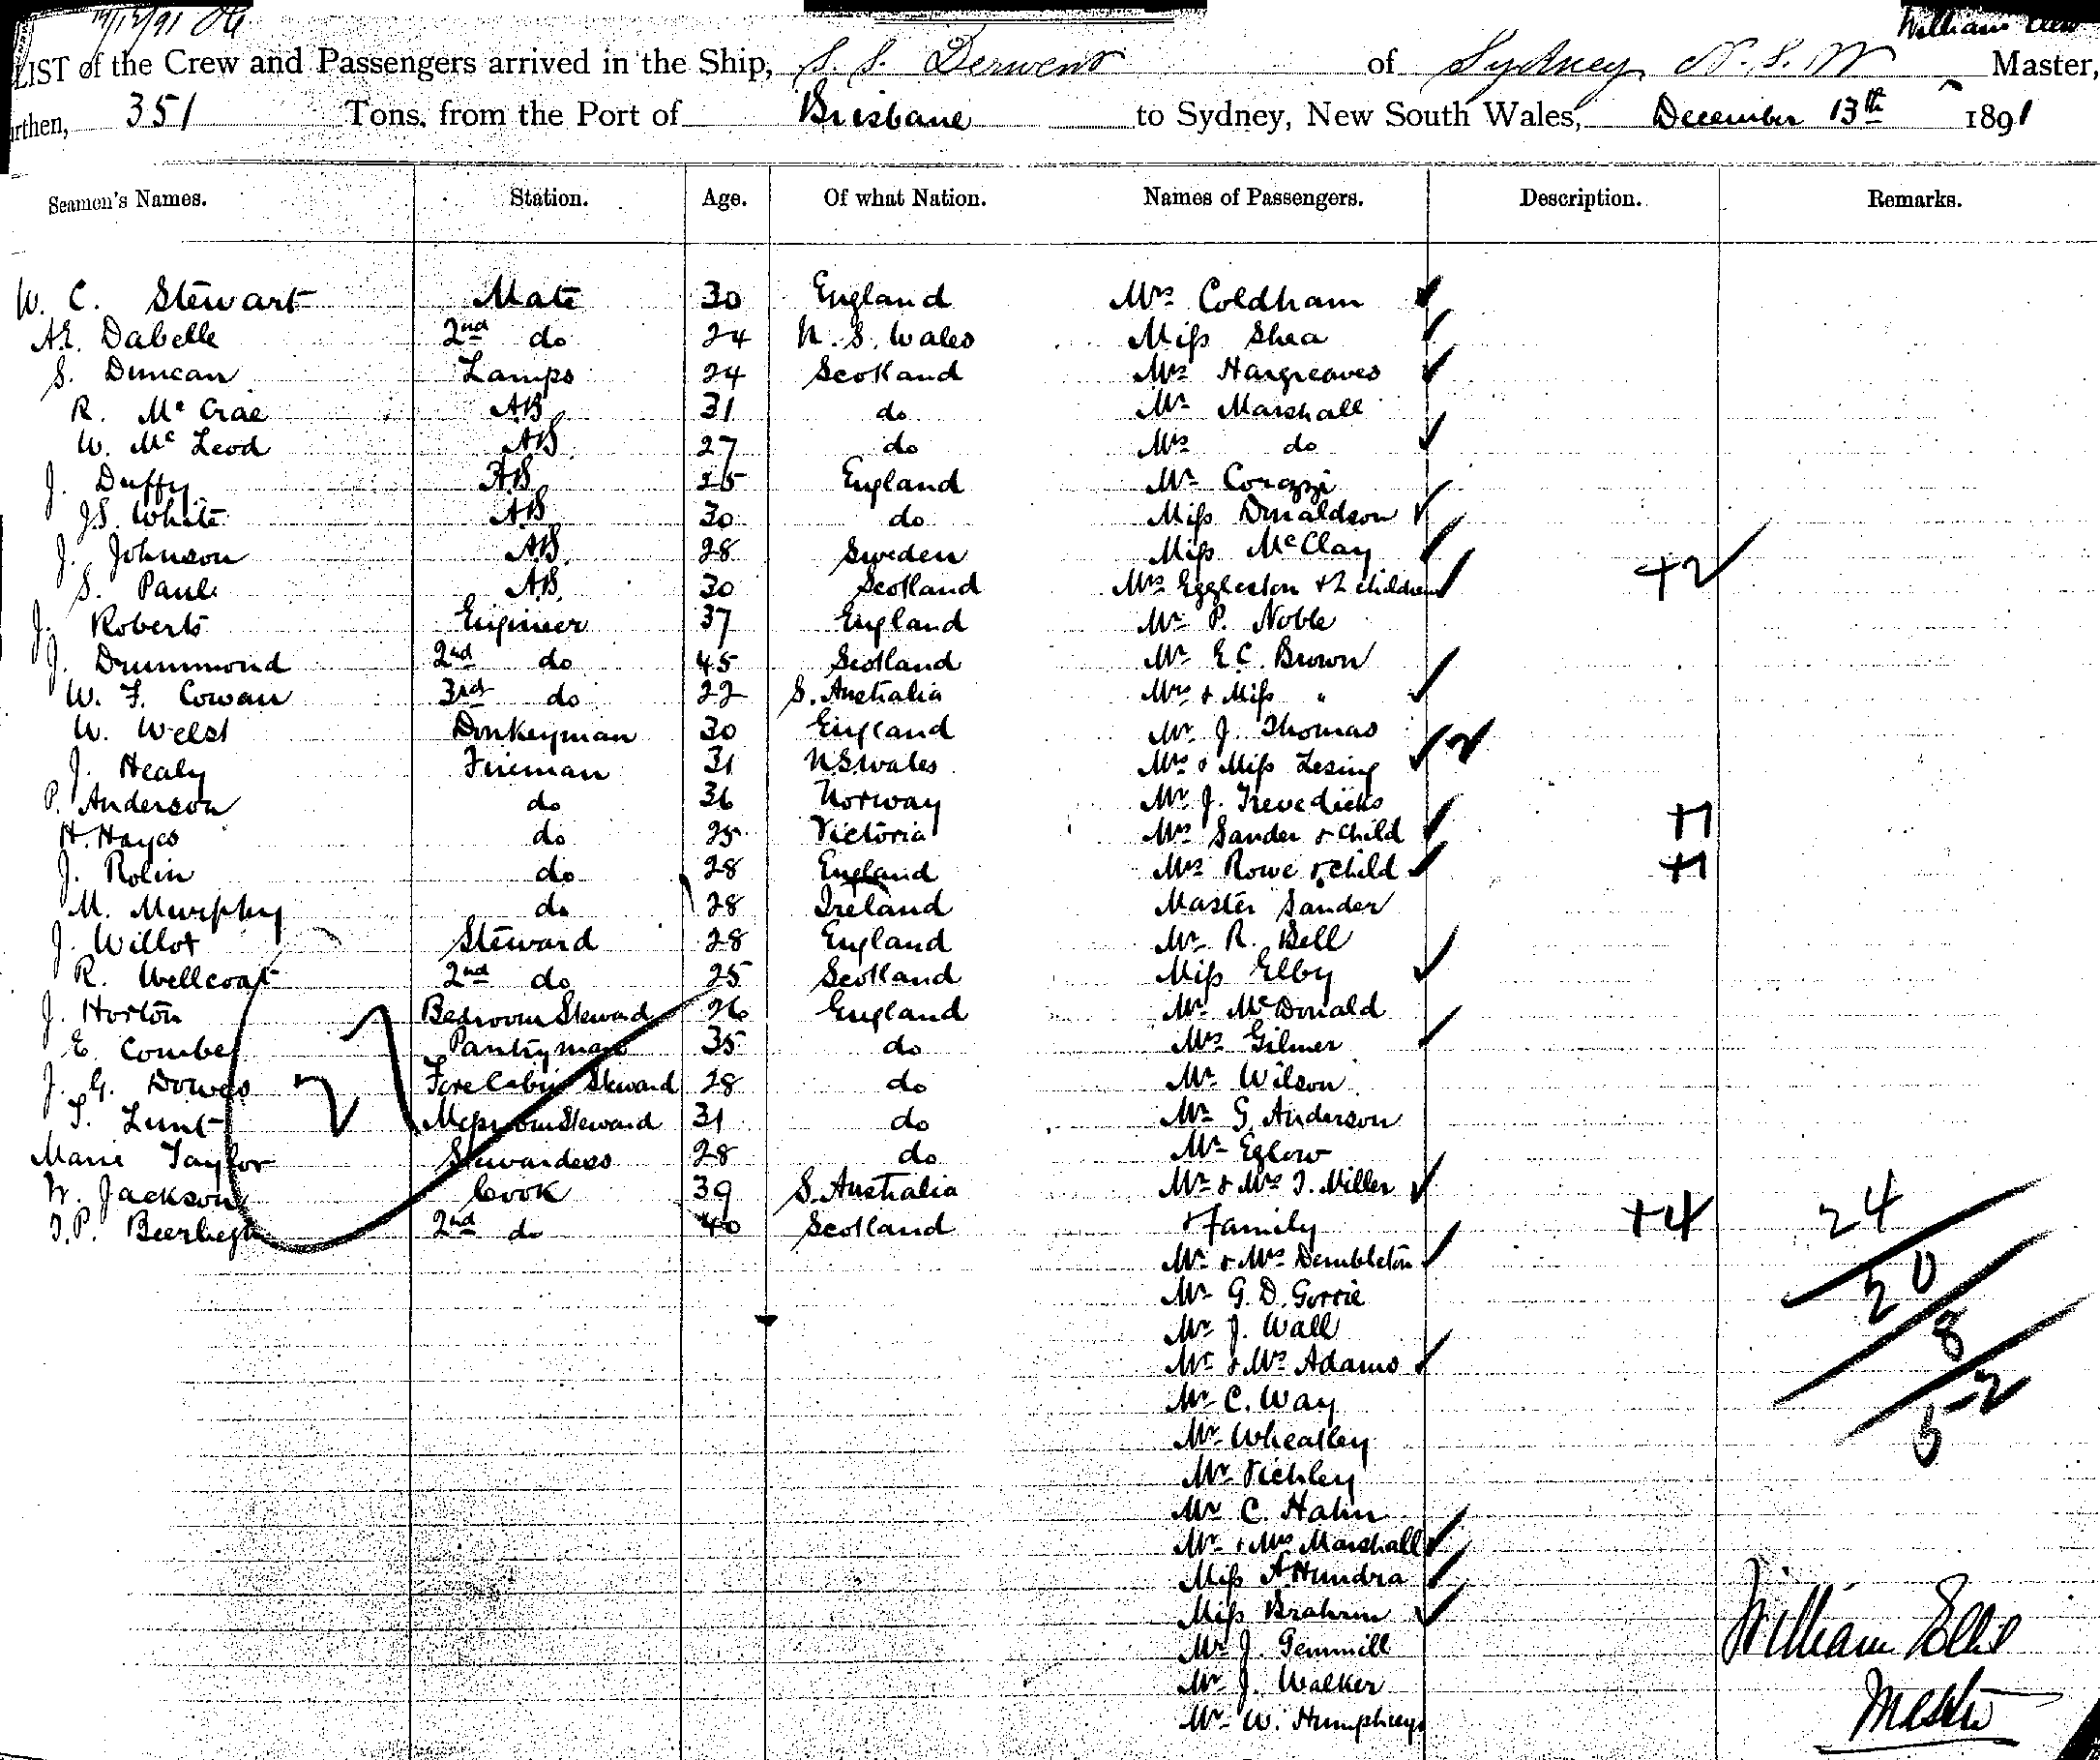 14/12/91
William Ellis
LIST of the Crew and Passengers arrived in the Ship, S. S. Derwent of Sydney, N. S. W Master,
rthen, 351 Tons, from the Port of Brisbane to Sydney, New South Wales, December 13th 1891
Seamen's Names. Station. Age. Of what Nation. Names of Passengers. Description. Remarks.
W. C. Stewart Mate 30 England Mrs Coldham
A.E. Dabelle 2nd do 24 N. S. Wales Miss Shea
S. Duncan Lamps 24 Scotland Mrs Hargreaves
R. McCrae AB 31 do Mr Marshall
W. McLeod AB 27 do Mrs do
J. Duffy AB 25 England Mr Corazzi
J.S. White AB 30 do Miss Donaldson
J. Johnson AB 28 Sweden Miss McClay
S. Paul AB 30 Scotland Mrs Eggleston + 2 children +2
J. Roberts Engineer 37 England Mr P. Noble
J. Drummond 2nd do 45 Scotland Mr E.C. Brown
W. F. Cowan 3rd do 22 S. Australia Mrs + Miss "
W. Welst Donkeyman 30 England Mr J. Thomas
J. Healy Fireman 31 NSWales Mrs + Miss Lesing 2
P. Anderson do 36 Norway Mr J. Trevedicks
H. Hayes do 25 Victoria Mrs Sander + child +1
J. Rolin do 28 England Mrs Rowe + child +1
M. Murphy do 28 Ireland Master Sander
J. Willot Steward 28 England Mr R. Bell
R. Wellcoat 2nd do 25 Scotland Miss Elby
J. Horton Bedroom Steward 26 England Mr McDonald
E. Comber Pantryman 35 do Mrs Gilmer
J. G. Dowes Fore Cabin Steward 28 do Mr Wilson
T. Lunt Messroom Steward 31 do Mr G. Anderson
Marie Taylor Stewardess 28 do Mr Eglow
W. Jackson Cook 39 S. Australia Mr + Mrs T. Miller
T.P. 2nd do 40 Scotland + Family +4 24
27
Mr + Mrs Dembleton 20
Mr G. D. Gorrie
Mr J. Wall 8
Mr + Mrs Adams
Mr C. Way 52
Mr Wheatley
Mr Vichley
Mr C. Hahn
Mr + Mrs Marshall
Miss A Hundra
Miss Brahm
Mr J. Gemmill William Ellis
Mr J. Walker
Mr W. Humphreys Master